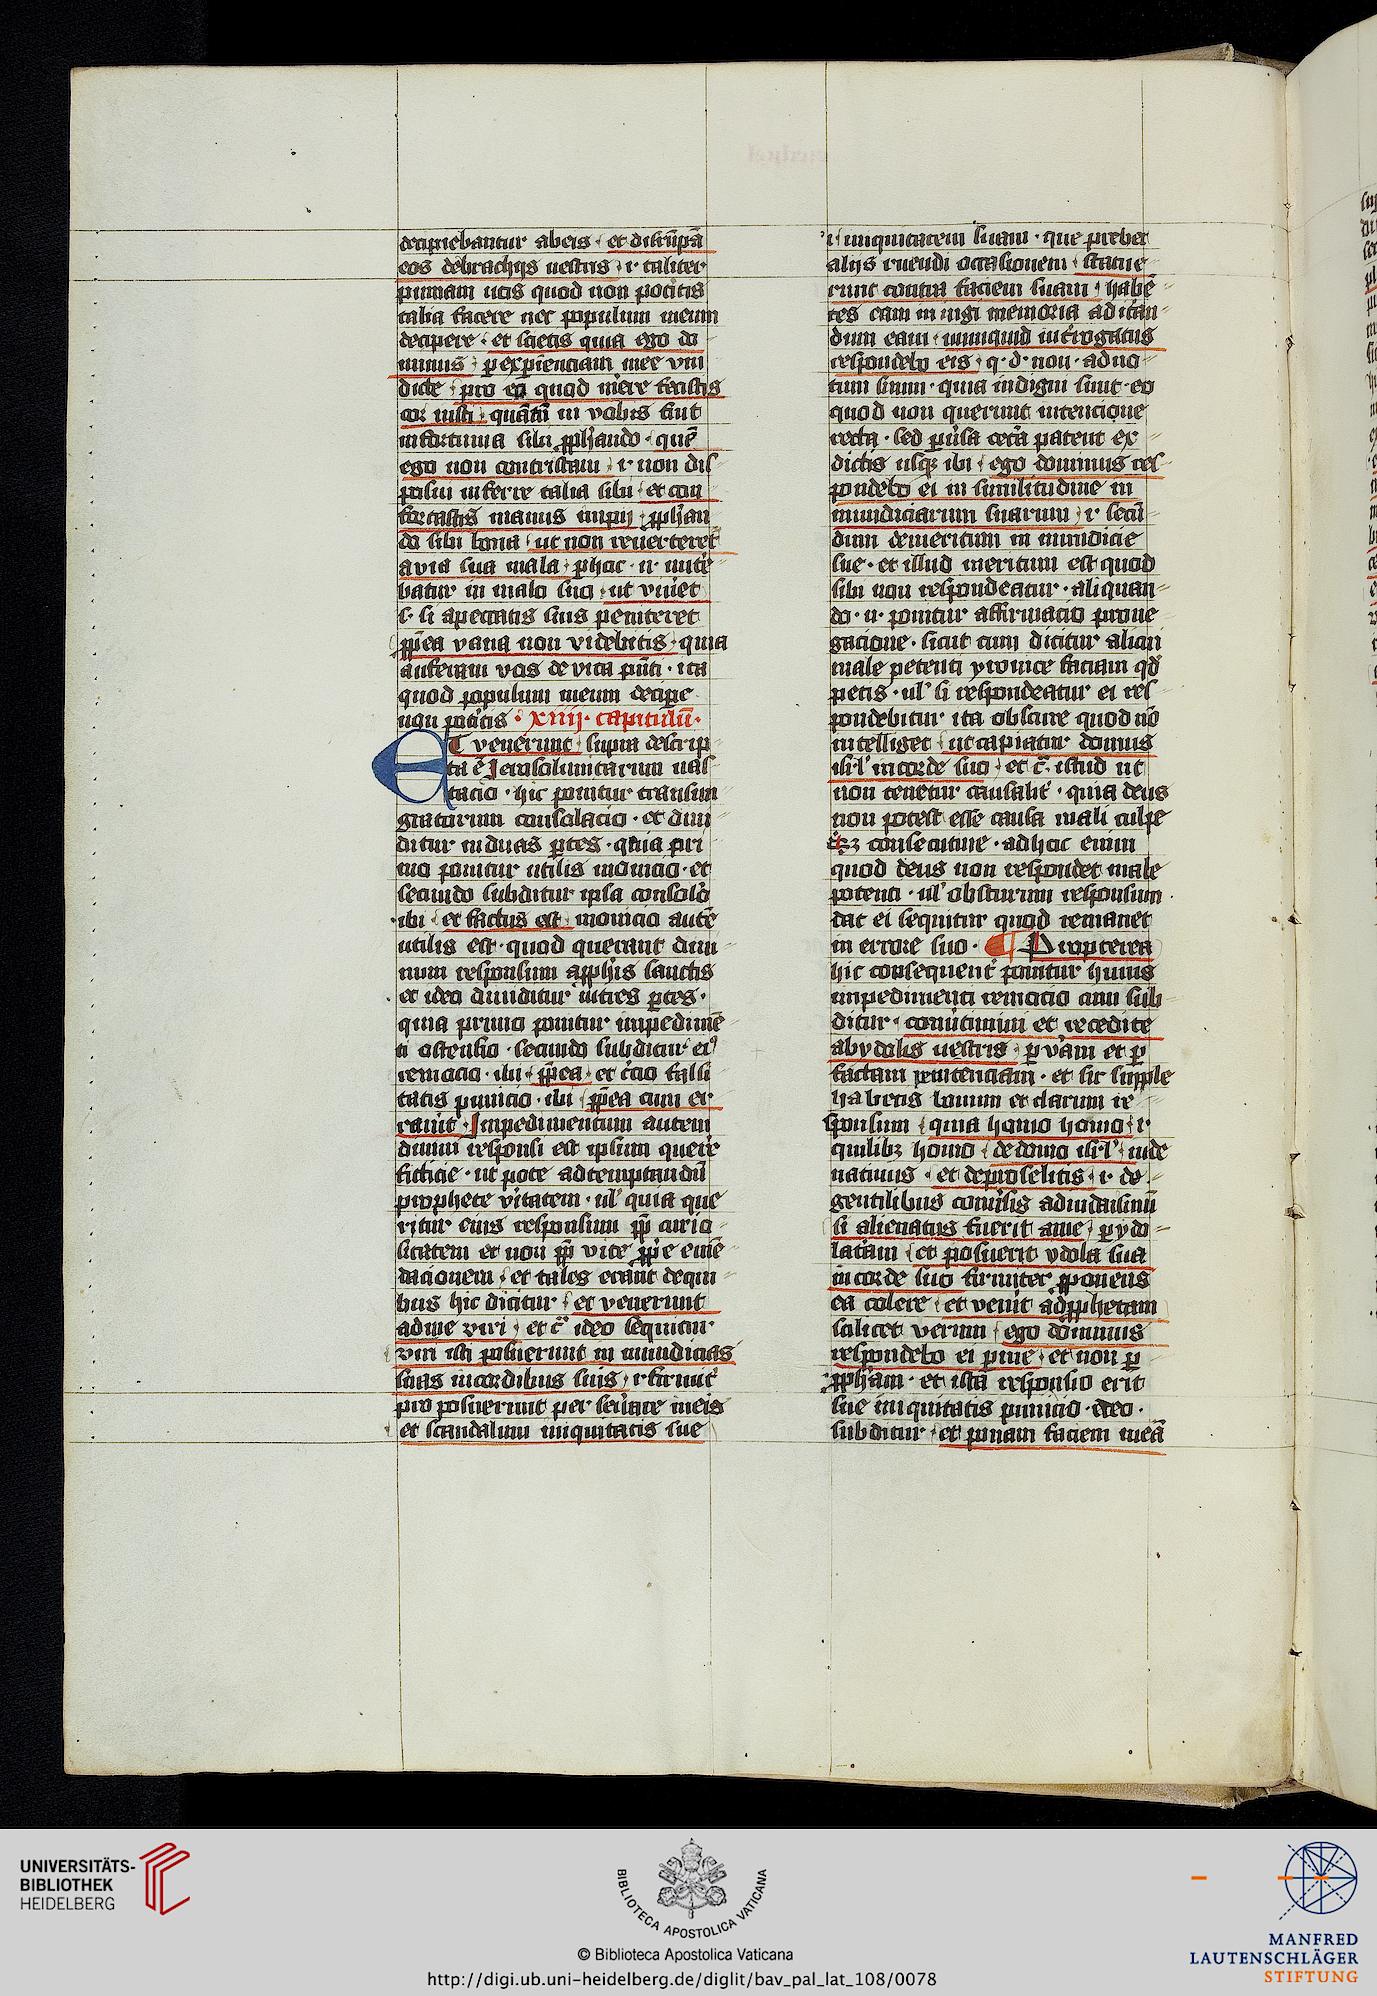 decipiebantur ab eis · et disrūpā
eos de brachijs vestris · i· taliter
puniam vos quod non poteritis
talia facere nec populum meum
decipere · et scietis quia ego do
minus · per experienciam mee vin
dicte · pro eo quod merere fecistis
cor iusti · quantum in vobis fuit
infortunia sibi prophando · quē
ego non contristaui · i· non dis
posui inferre talia sibi · et con
fortastis manus impij · prophan
do sibi bona · ut non reuerteret
a via sua mala · per hoc · n· nute
batur in malo suo · ut viuet
s· si a peccatis suis peniteret
ppea vana non videbitis · quia
auferam vos de vita pnti · ita
quod populum meum decipe
non potitis · xiiii · capitulū ·
ET venerunt · supra descrip
ta ē Jerosolimitarum uas
tacio · hic ponitur transmi
gratorum consolacio · et diui
ditur in duas ptes · quia pri
mo ponitur utilis monicio · et
secundo subditur ipsa consolō
ibi · et factus est · monicio autē
utilis est · quod querant diui
num responsum a pphis sanctis
et ideo diuiditur in tres ptes ·
quia primo ponitur impedimē
ti ostensio · secundo subditur ei
remocio · ibi · ppea · et tcio falsi
tatis punicio · ibi · ppea cum er
rauit · Impedimentum autem
diuini responsi est ipsum querere
fictice · ut pote ad temptandū
prophete vitatem · ul' quia que
ritur eius responsum pp curio
sitatem et non pp vite pprie emē
dacionem · et tales erant de qui
bus hic dicitur · et venerunt
ad me viri · et c̄ ideo sequitur
viri isti posuerunt in mundicias
suas in cordibus suis · i· firmit
pro posuerunt per seuerare in eis
et scandalum iniquitatis sue
i· iniquitatem suam · que prebet
alijs ruendi occasionem · statue
runt contra faciem suam · habē
tes eam in iugi memoria ad itan
dum eam · numquid int'rogatus
respondebo eis · q· d· non · ad uo
tum suum · quia indigni sunt · eo
quod non querunt intencione
recta · sed pversa cetera patent ex
dictis usqz ibi · ego dominus res
pondebo ei in similitudine in
mundiciarum suarum · i· secū
dum demeritum in mundicie
sue · et illud meritum est quod
sibi non respondeatur · aliquan
do · n· ponitur affirmacio pro ne
gacione · sicut cum dicitur alicui
male petenti yronice faciam qd
petis · ul' si respondeatur ei res
pondebitur ita obscure quod nō
intelliget · ut capiatur domus
isrl' in corde suo · et c̄ · istud ut
non tenetur causaliter · quia deus
non potest esse causa mali culpe
consecutiue · ad hoc enim
quod deus non respondet male
petenti · ul' obscurum responsum
dat ei sequitur quod remanet
in errore suo · ¶ Propterea
hic consequent' ponitur huius
impedimenti remocio cum sub
ditur · conu'timini et recedite
ab ydolis uestris · p veram et p
factam penitenciam · et sic simple
habetis bonum et clarum re
sponsum · quia homo homo · i·
quilibz homo · de domo isrl' · inde
natiuus · et de proselitis · i· de
gentilibus conu'sis ad iudaismū
si alienatus fuerit a me · p ydo
latriam · et posuerit ydola sua
in corde suo firmiter pponens
ea colere · et venit ad pphetam
scilicet verum · ego dominus
respondebo ei p me · et non p
ppham · et ista responsio erit
sue iniquitatis punicio · ideo ·
subditur · et ponam faciem meā
UNIVERSITÄTS-
BIBLIOTHEK
HEIDELBERG
BIBLIOTECA APOSTOLICA VATICANA
© Biblioteca Apostolica Vaticana
http://digi.ub.uni-heidelberg.de/diglit/bav_pal_lat_108/0078
MANFRED
LAUTENSCHLÄGER
STIFTUNG